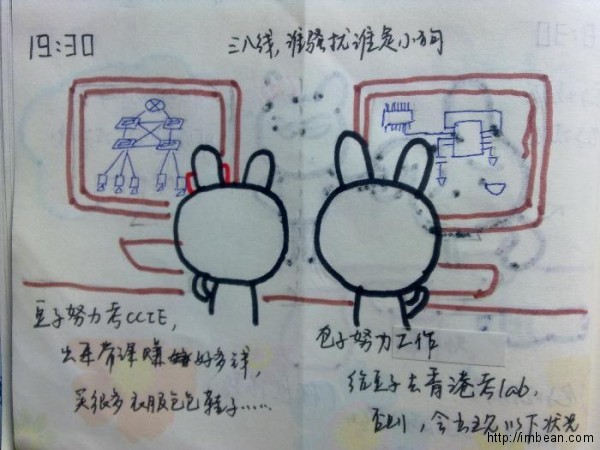 19:30
三八线，谁骚扰谁是小狗
豆子努力考CCIE，
出来带课赚好多钱，
买很多衣服包包鞋子……
包子努力工作
给豆子去香港考lab.
否则，会出现以下状况
http://imbean.com